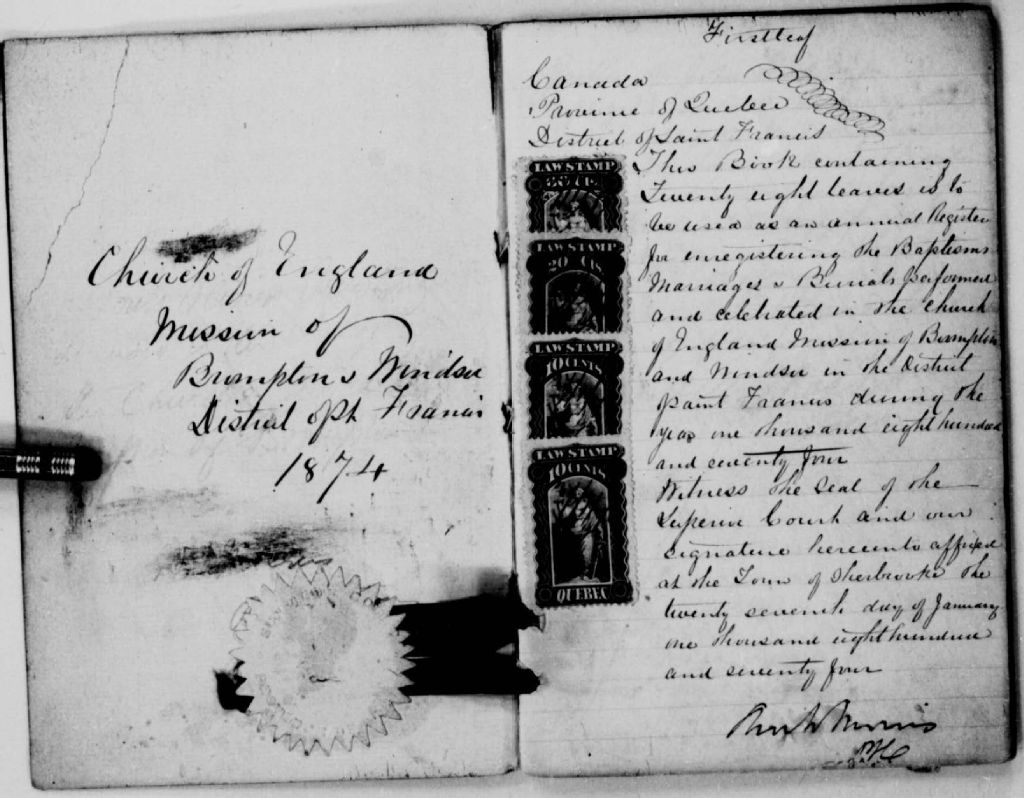 Church of England
Mission of
Brompton & Windsor
District of St Francis
1874
First leaf
Canada
Province of Quebec
District of Saint Francis
This Book containing
Twenty eight leaves is to
be used as an annual Register
for enregistering the Baptisms
Marriages & Burials performed
and celebrated in the Church
of England Mission of Brompton
and Windsor in the District
of Saint Francis during the
year one thousand eight hundred
and seventy four
Witness the Seal of the
Superior Court and our
signature hereunto affixed
at the Town of Sherbrooke the
twenty seventh day of January
one thousand eight hundred
and seventy four
Morris
LAW STAMP
LAW STAMP
20 CTS.
LAW STAMP
10 CENTS
LAW STAMP
10 CENTS
QUEBEC